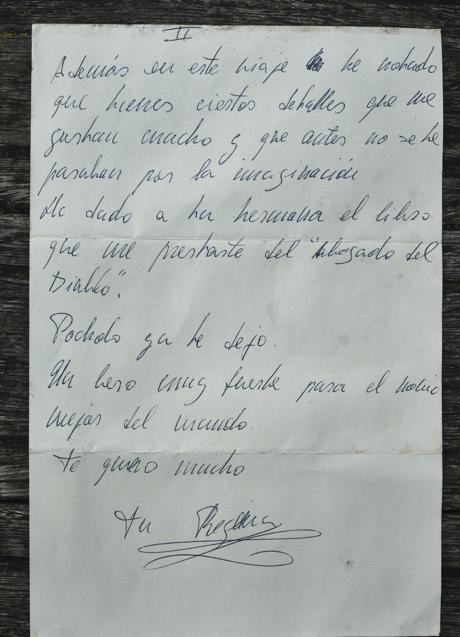 II
Además en este viaje he notado
que tienes ciertos detalles que me
gustan mucho y que antes no se te
pasaban por la imaginación
He dado a tu hermana el libro
que me prestaste del "Abogado del
Diablo".
Pocholo ya te dejo.
Un beso muy fuerte para el novio
mejor del mundo.
Te quiero mucho
tu Regina